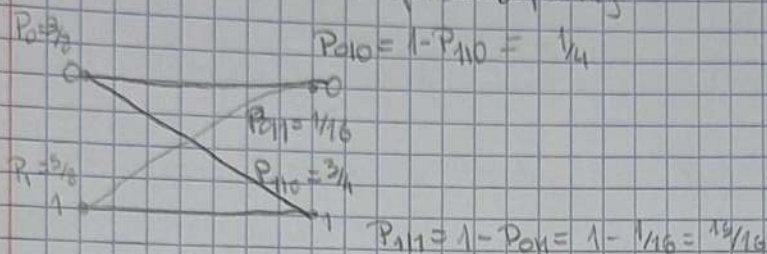 P₀=3/8
P₀|₀ = 1-P₁|₀ = 1/4
0 0
P₀|₁ = 1/16
P₁ = 5/8
P₁|₀ = 3/4
1 1
P₁|₁ = 1 - P₀|₁ = 1 - 1/16 = 15/16